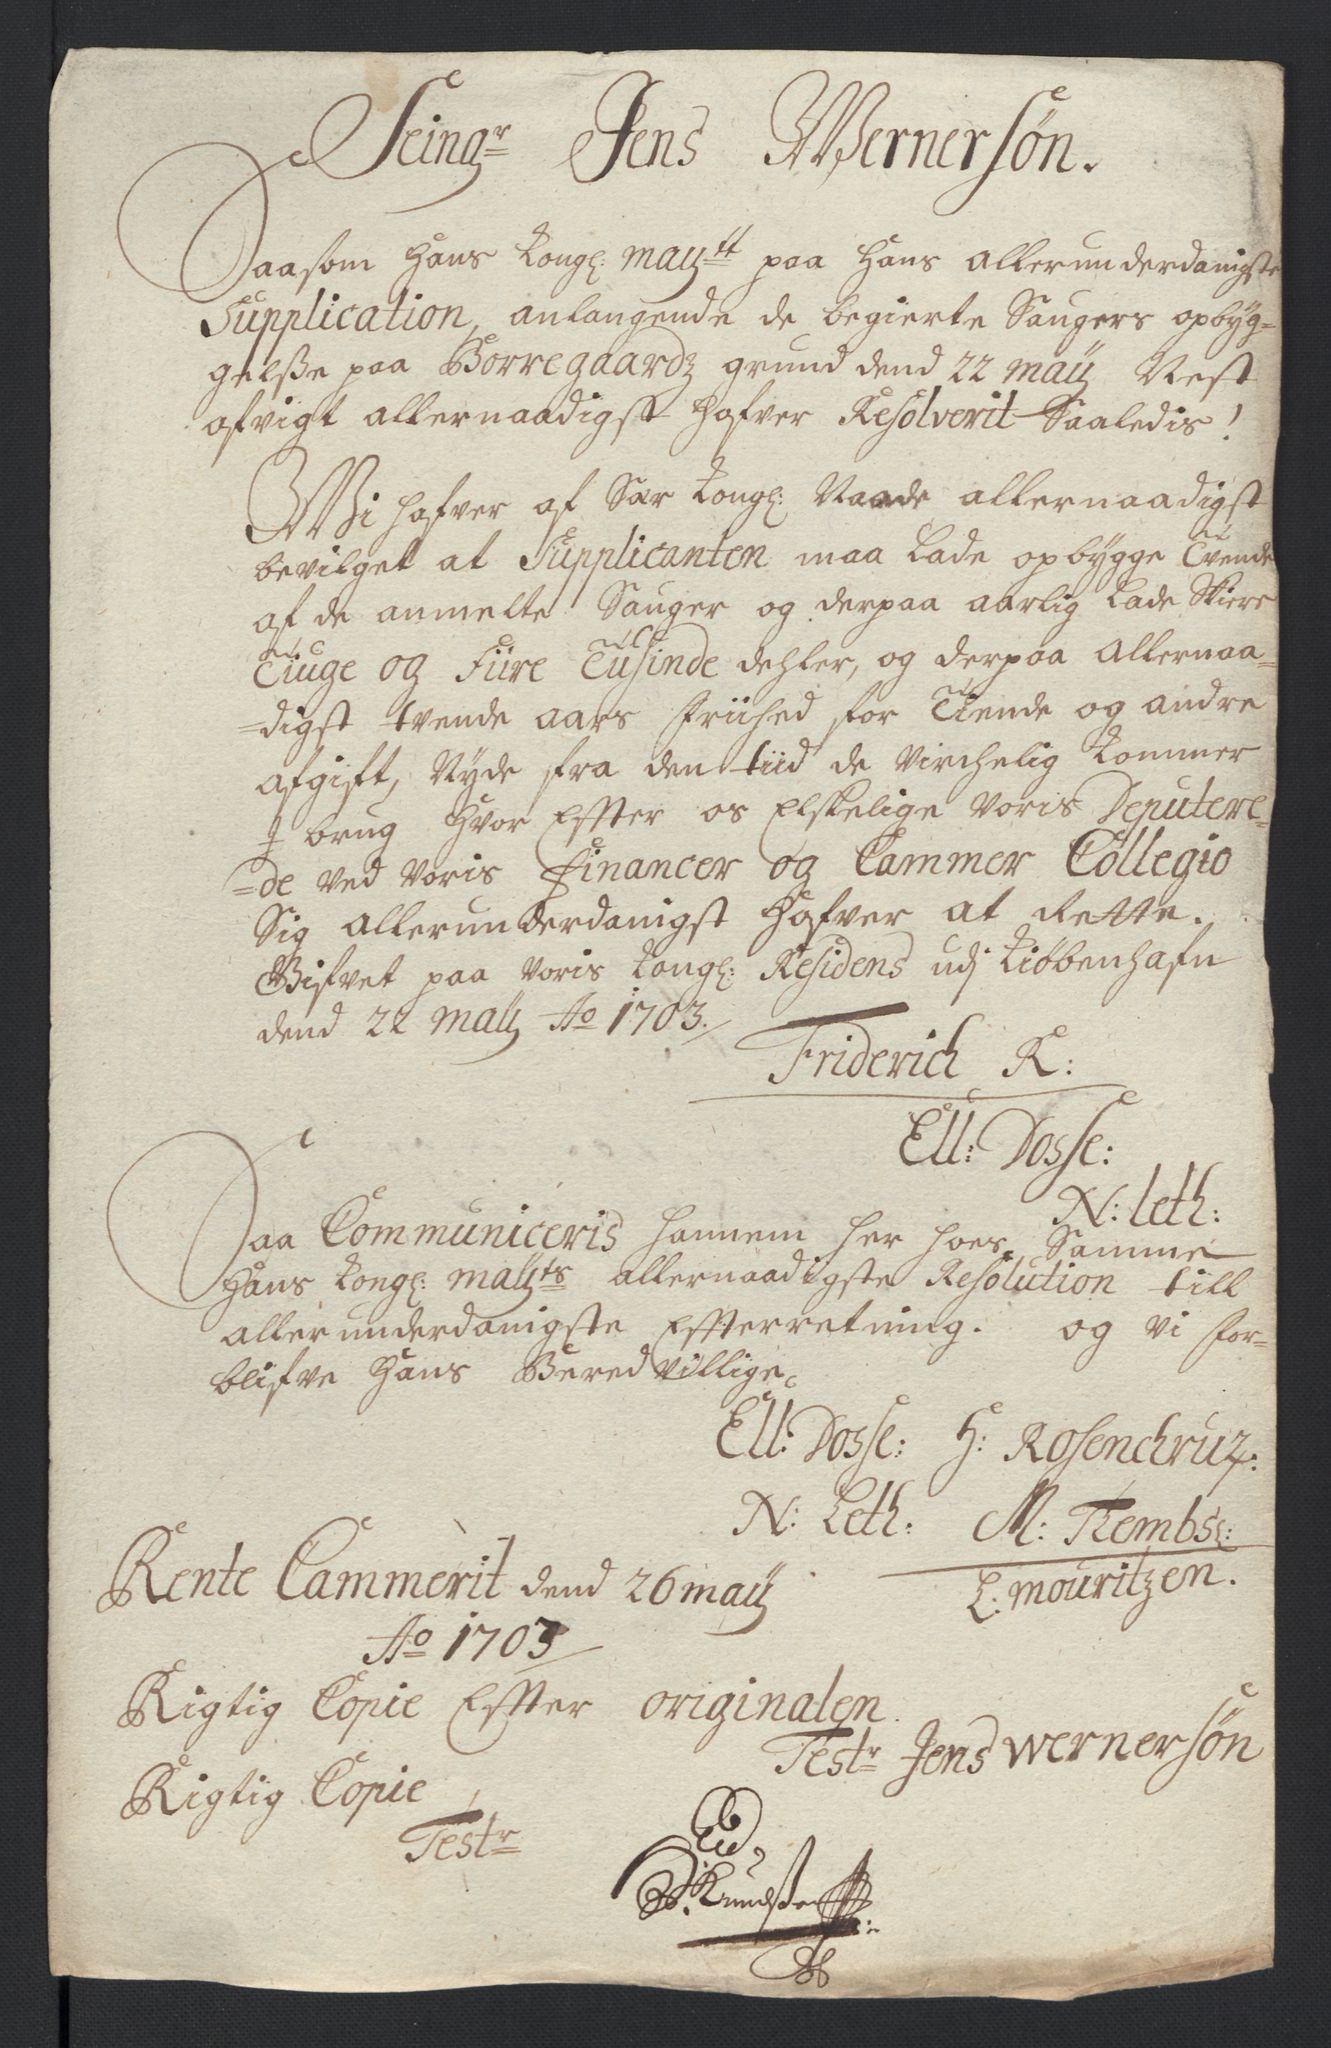 Seingr Jens Wernersøn.
Saasom Hans Kongl: Maÿtt paa Hans allerunderdanigste
Supplication, anlangende de begierte Saugers opbÿg-
gelsse paa Borregaardz grund dend 22 maÿ Nest
afvigt allernaadigst hafver Resolverit Saaledis!
Wi hafver af Sær Kongl: Naade allernaadigst
bevilget at Supplicanten maa lade opbÿgge Tvende
af de anmelte Sauger og derpaa aarlig lade Skiere
Tiuge og Fiire Tusinde dehler, og derpaa allernaa-
-digst tvende aars friihed for Tiende og andre
afgift, Nÿde fra den tiid de Virchelig kommer
I brug hvor Effter os Elskelige Voris Deputere-
-de ved Voris Financer og Cammer Collegio
Sig allerunderdanigst hafver at Rette.
Gifvet paa Voris Kongl: Residens udj Kiøbenhafn
dend 22 Maÿ Ao 1703.
Friderich R:
Ell: Dosse:
N: Leth:
Saa Communiceris hannem her hoes Samme
Hans Kongl: Maÿts allernaadigste Resolution till
allerunderdanigste Effterretning. og vi for-
blifve Hans Beredvillige
Ell: Dosse: H: Rosenchruz:
N: Leth: M: Tembs:
L: Mouritzen.
Rente Cammerit dend 26 maÿ
Ao 1703
Rigtig Copie Effter originalen.
Testr Jens Wernersøn
Rigtig Copie
Testr